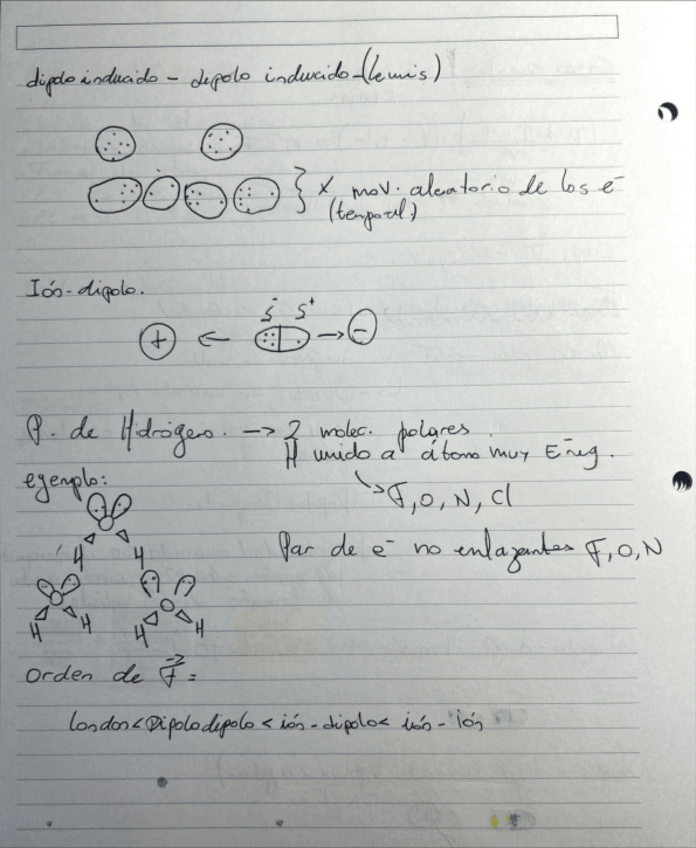 dipolo inducido - dipolo inducido - (lewis)
} x mov. aleatorio de los e⁻
(temporal)
Ión-dipolo.
δ⁻ δ⁺
+ ← → -
P. de Hidrógeno. → 2 molec. polares.
H unido a átomo muy E⁻neg.
ejemplo:
↘ F, O, N, Cl
H H
Par de e⁻ no enlazantes F, O, N
H H H H
Orden de F⃗ =
london < Dipolo dipolo < ión - dipolo < ión - ión